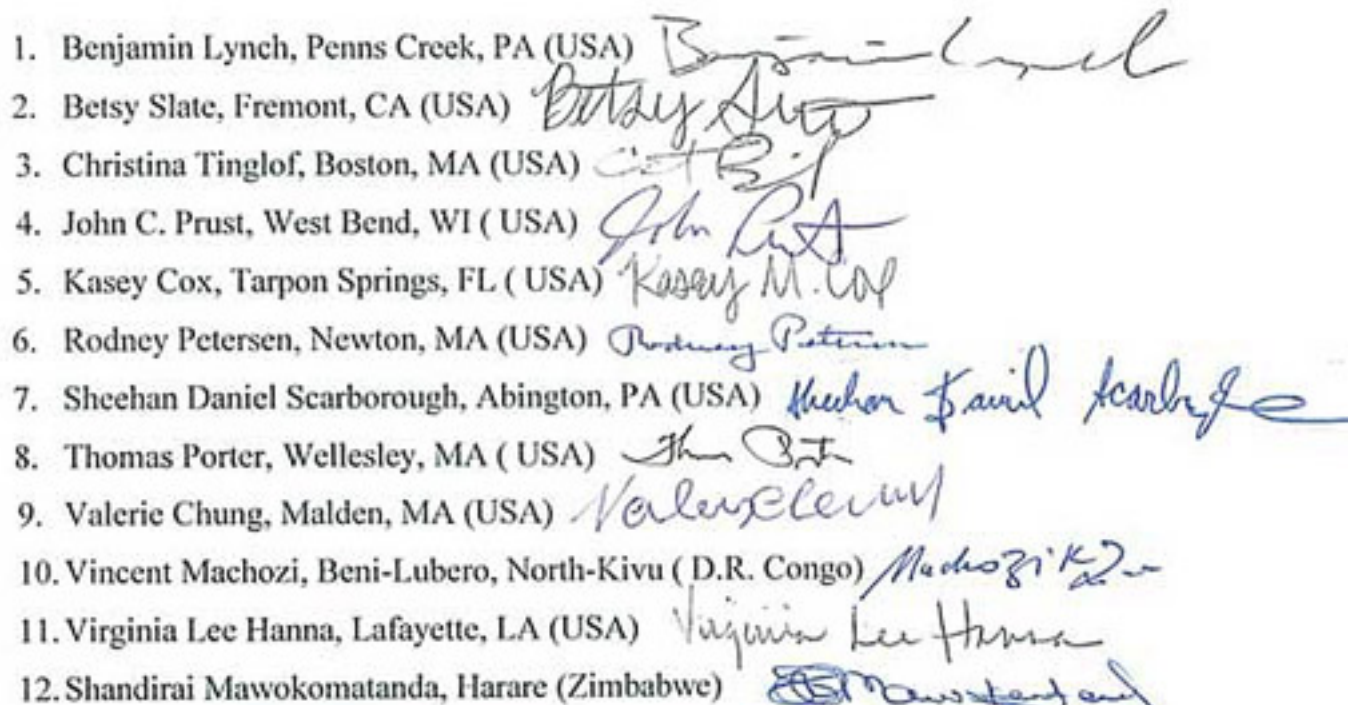 1. Benjamin Lynch, Penns Creek, PA (USA) Benjamin Lynch
2. Betsy Slate, Fremont, CA (USA) Betsy
3. Christina Tinglof, Boston, MA (USA)
4. John C. Prust, West Bend, WI ( USA) John Prust
5. Kasey Cox, Tarpon Springs, FL ( USA) Kasey M. Cox
6. Rodney Petersen, Newton, MA (USA) Rodney Petersen
7. Sheehan Daniel Scarborough, Abington, PA (USA) Sheehan Daniel
8. Thomas Porter, Wellesley, MA ( USA)
9. Valerie Chung, Malden, MA (USA)
10. Vincent Machozi, Beni-Lubero, North-Kivu ( D.R. Congo) Machozi
11. Virginia Lee Hanna, Lafayette, LA (USA) Virginia Lee Hanna
12. Shandirai Mawokomatanda, Harare (Zimbabwe)